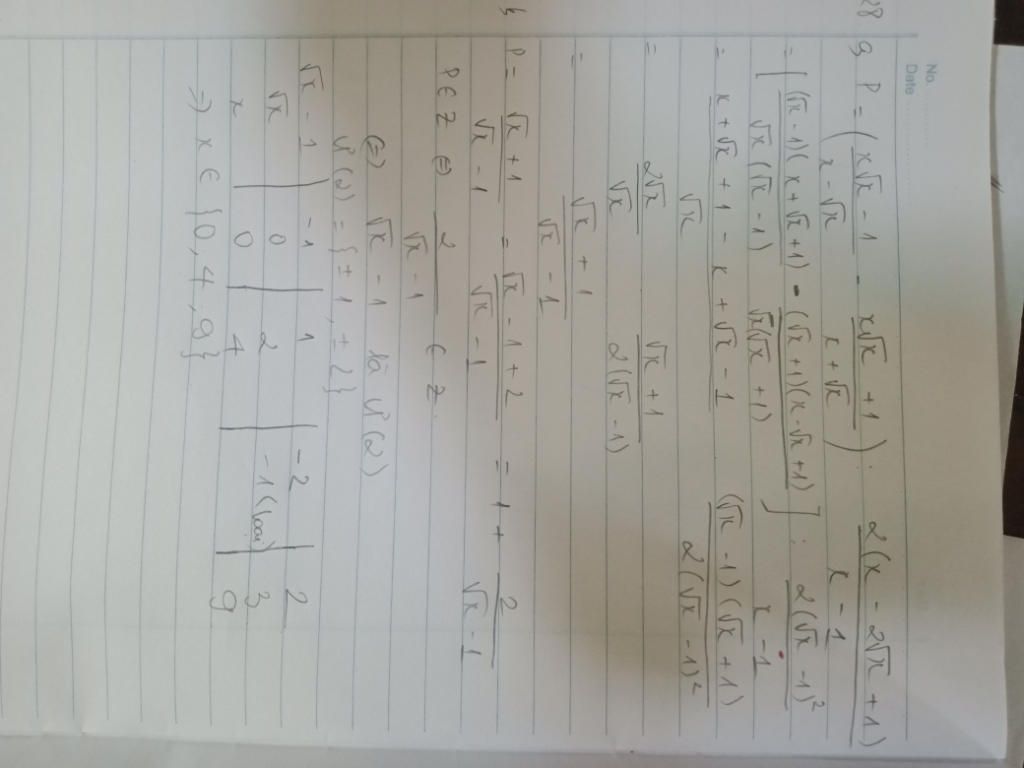 No.
Date
28
a P = ( (x√x - 1)/(x - √x) - (x√x + 1)/(x + √x) ) : 2(x - 2√x + 1)/(x - 1)
= [ (√x - 1)(x + √x + 1)/(√x(√x - 1)) - (√x + 1)(x - √x + 1)/(√x(√x + 1)) ] : 2(√x - 1)²/(x - 1)
= (x + √x + 1 - x + √x - 1)/√x · (√x - 1)(√x + 1)/(2(√x - 1)²)
= 2√x/√x · (√x + 1)/(2(√x - 1))
= (√x + 1)/(√x - 1)
b P = (√x + 1)/(√x - 1) = (√x - 1 + 2)/(√x - 1) = 1 + 2/(√x - 1)
P ∈ Z ⇔ 2/(√x - 1) ∈ Z.
⇔ √x - 1 là Ư(2)
Ư(2) = {±1, ±2}
√x - 1 | -1 | 1 | -2 | 2
√x | 0 | 2 | -1 (loại) | 3
x | 0 | 4 | | 9
⇒ x ∈ {0, 4, 9}